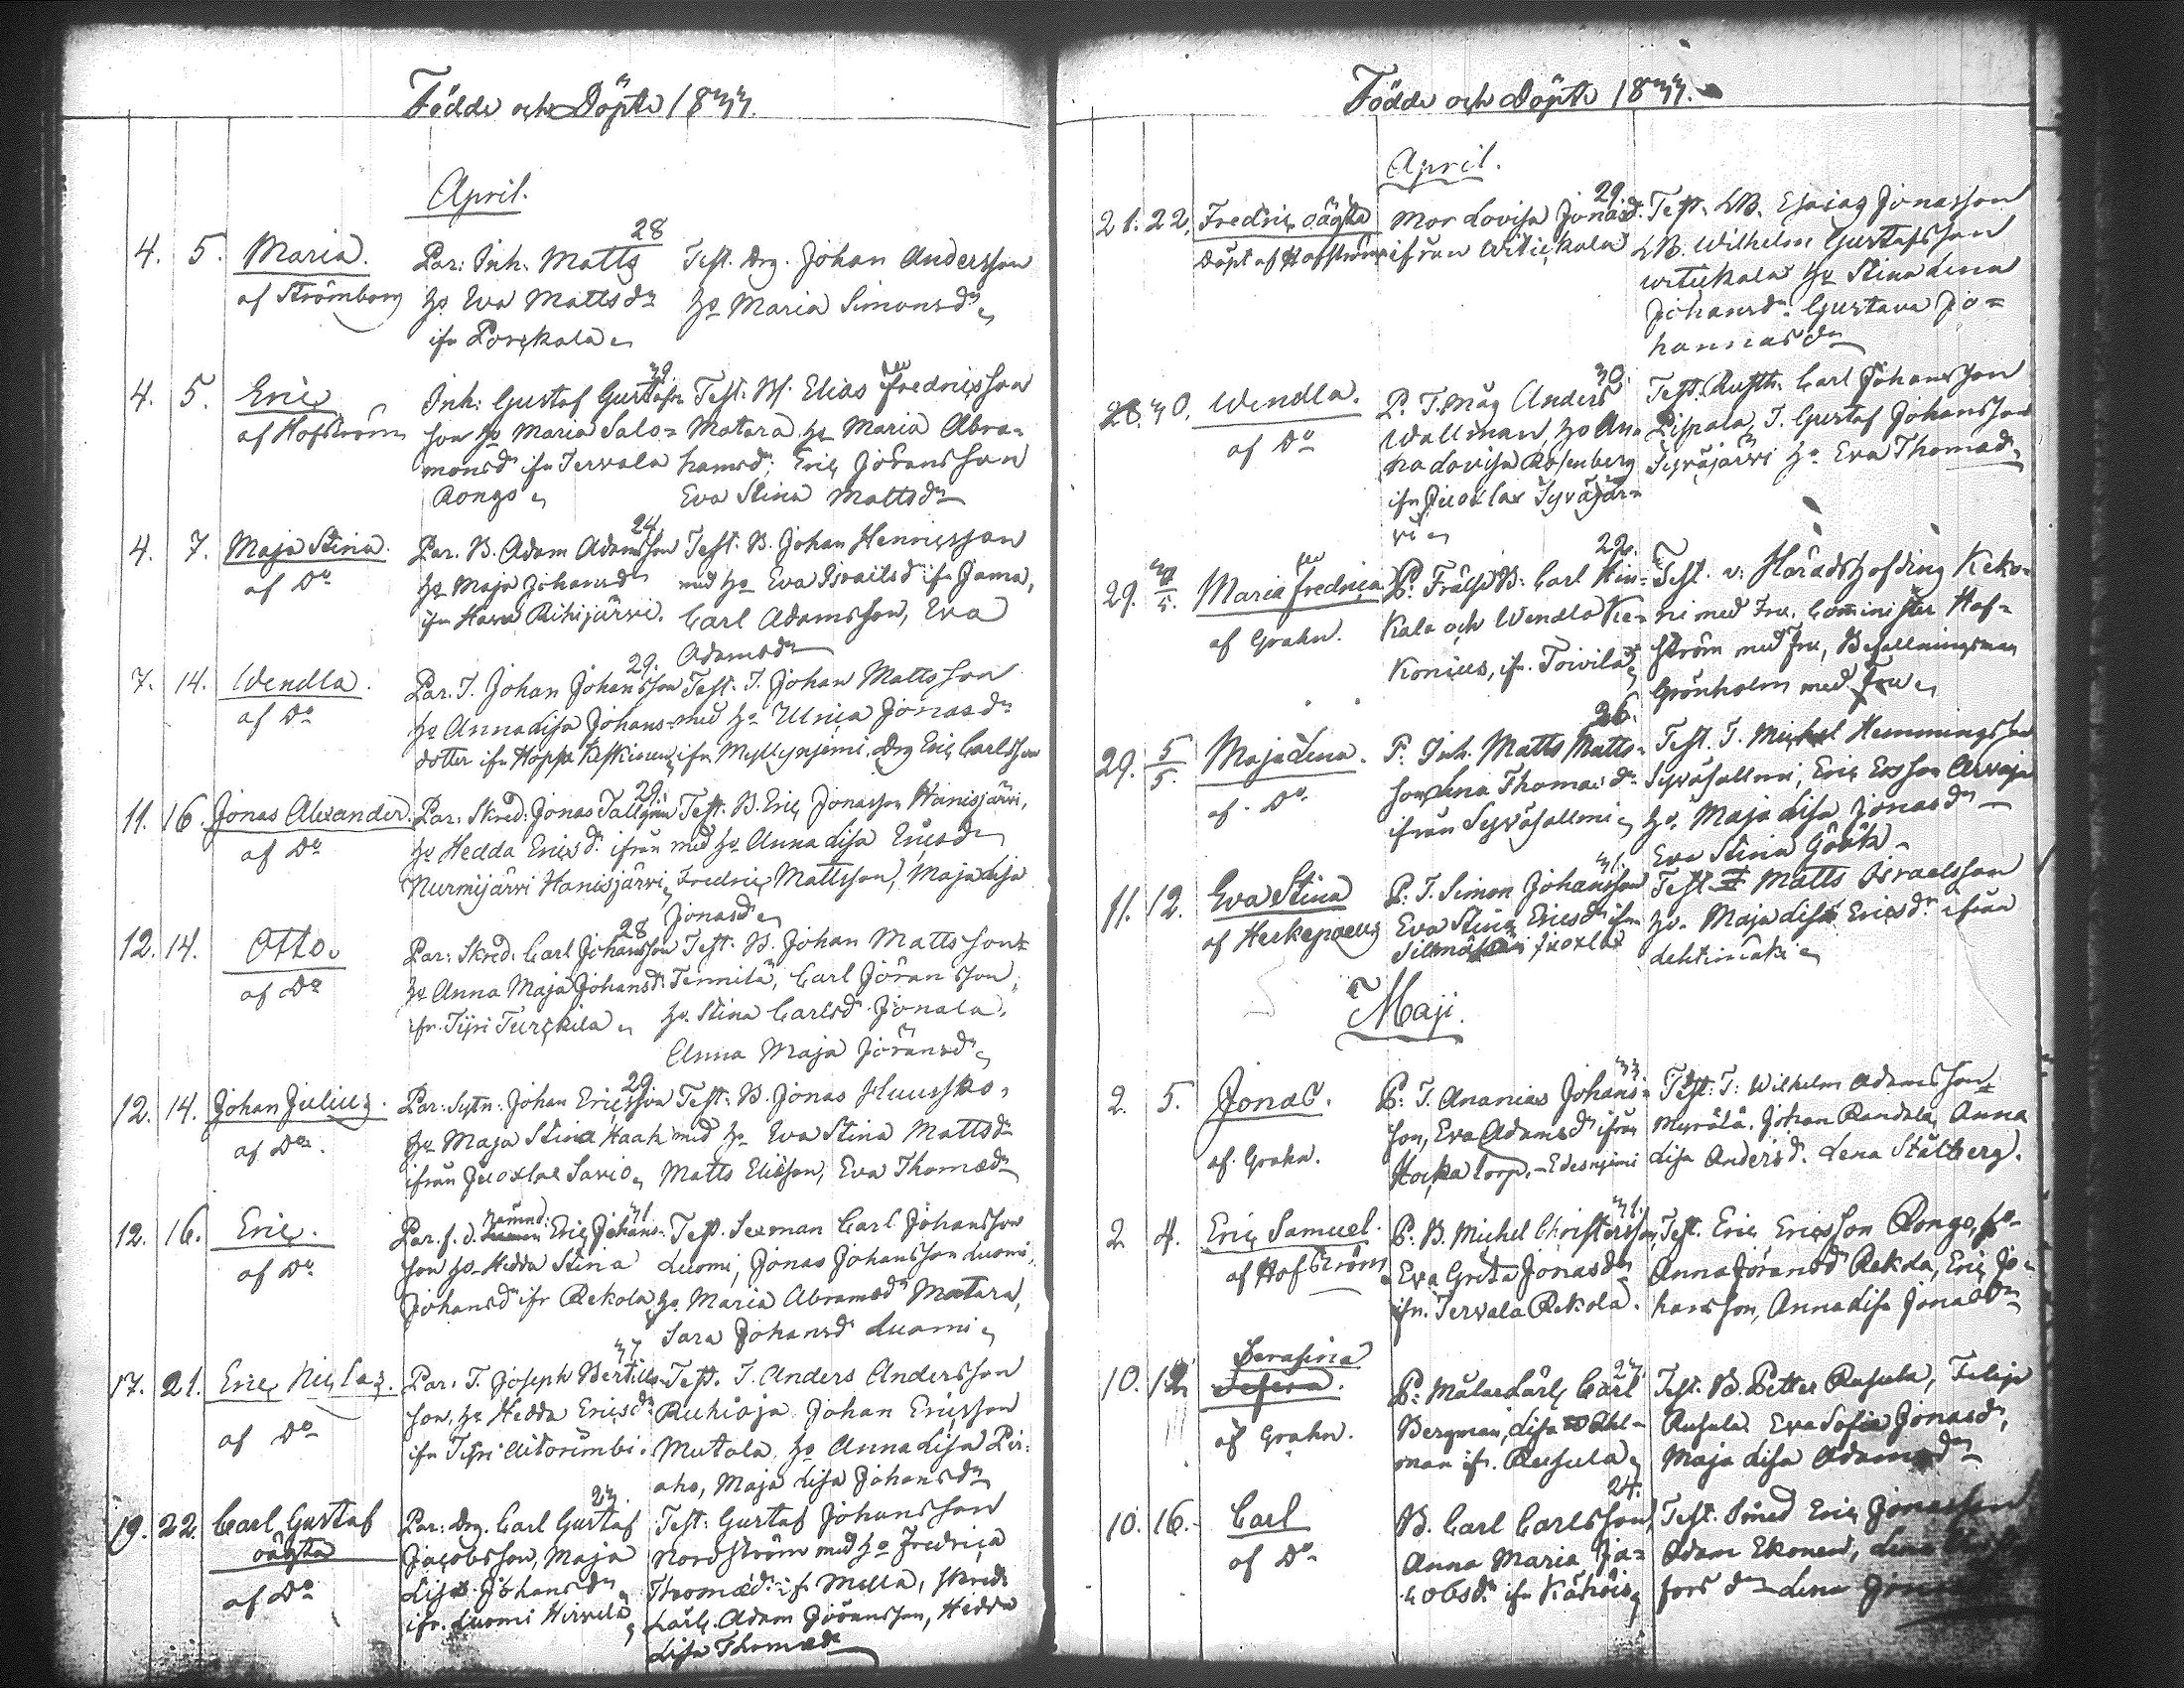 Födde och Döpte 1833.
April.
4. 5. Maria.
af Strömborg
28
Par: Inh. Matts
ho Eva Mattsdr
ifn Porskala
Test. Drg. Johan Andersson
ho Maria Simonsdr
4. 5. Eric
af Hofström
39.
Inh: Gustaf Gustafs-
son ho Maria Salo=
monsdr ifn Tervala
Rongo
Test: B. Elias Fredricsson
Matara, ho Maria Abra=
hamsdr; Eric Johansson
Eva Stina Mattsdr
4. 7. Maja Stina.
af Do
24
Par. B. Adam Adamsson
ho Maja Johansdr
ifn Rihijärvi.
Test: B. Johan Henricsson
med ho Eva Israelsdr ifn
Carl Adamsson, Eva
Adamsdr
7. 14. Wendla.
af Do
29.
Par. T. Johan Johansson
ho Anna Lisa Johans-
dotter ifn
Test. T. Johan Mattsson
med ho Ulrica Jonasdr
ifn Myllynjemi. Drg Eric Carlsson
11. 16. Jonas Alexander.
af Do
29.
Par: Skred: Jonas Tallgren
ho Hedda Ericsdr ifrån
Nurmijärvi Hanisjärvi
Test: B. Eric Jonasson Hanisjärvi,
med ho Anna Lisa Ericsdr
Fredric Mattsson, Maja Lisa
Jonasdr
12. 14. Otto.
af Do
28
Par: Skred. Carl Johansson
ho Anna Maja Johansdr
ifr. Tyri Turckila
Test. B. Johan Mattsson
Tennilä, Carl Jöransson,
ho. Stina Carlsdr Jonala.
Anna Maja Jöransdr
12. 14. Johan Julius.
af Do
29
Par: Sytn: Johan Ericsson
ho Maja Stina Kaak
ifrån Juoxlax Savio
Test: B. Jonas Huusko,
med ho Eva Stina Mattsdr
Matts Elisson, Eva Thomædr
12. 16. Eric.
af Do
31.
Par. f. d. Nämnd: Eric Johans-
son ho Hedda Stina
Johansdr ifr Rekola
Test. Sexman Carl Johansson
Luomi, Jonas Johansson Luomi,
ho. Maria Abramsdr Matara,
Sara Johansdr Luomi
17. 21. Eric Niclas.
af Do
37
Par. T. Joseph Bertils-
son, ho Hedda Ericsdr
ifn Tyri Aitorimbi.
Test. T. Anders Andersson
Ruhioja Johan Ericsson
Mutala, ho Anna Lisa Pir-
aho, Maja Lisa Johansdr
19. 22. Carl Gustaf
oägta
af Do
23.
Par: Drg. Carl Gustaf
Jacobsson, Maja
Lisa Johansdr
ifr. Luomi Hirvelä
Test: Gustaf Johansson
Nordström med ho Fredrica
Thomædr ifr Mella, Skred:
Lärl. Adam Jöransson, Hedda
Lisa Thomædr
Födde och Döpte 1833.
April.
21. 22. Fredric oägta
Döpt af Hofström
29.
Mor Lovisa Jonasdr
ifrån Witickala
Test. LB. Esaias Jonasson
LB. Wilhelm Gustafsson
Witickala ho Stina Lena
Johansdr. Gustava Jo=
hannasdr
28. 30. Wendla.
af Do
30.
P. T. mag Anders
Wallman, ho An-
na Lovisa Rosenberg
ifn Juoxlax Syväjär-
vi
Test. Rusth. Carl Johansson
Pispala, T. Gustaf Johansson
Syväjärvi ho Eva Thomædr
29. 5. Maria Fredrica
af Grahn.
22.
P. Frälse B: Carl Hin-
kala och Wendla Ke-
konius, ifr. Toivila
Test. v: Häradshöfding Keko-
ni med Fru. Comminister Hof-
ström med Fru, Befallningsman
Grönholm med Fru
29. 5/5. Maja Lena.
af Do.
26.
P. Inh. Matts Matts-
son Thomasdr
ifrån Syväsalmi
Test. T. Michel Hemmingsson
Syväsalmi, Eric Ersson Arvaja
ho. Maja Lisa Jonasdr
Eva Stina Göök
11. 12. Eva Stina
af Herkepaeus
31.
P. T. Simon Johansson
Eva Stina Ericsdr ifrn
Juoxlax
Test. Matts Israelsson
ho. Maja Lisa Ericsdr ifrån
Lehtimäki
Maji.
2. 5. Jonas.
af. Grahn.
33
P: T. Ananias Johans-
son, Eva Adamsdr ifrån
Hocka torp. Edesnjemi
Test: T: Wilhelm Adamsson
Myrölä. Johan Randala, Anna
Lisa Andersdr. Lena Stålberg.
2 4. Eric Samuel.
af Hofström
31.
P. B. Michel Christersson,
Eva Greta Jonasdr
ifn. Tervala Rekola.
Test. Eric Ericsson Rongo, ho
Anna Jöransdr Rekola, Eric Jo-
hansson, Anna Lisa Jonasdr
10. 12 Serafina
af Grahn.
23.
P: Målar Lärl: Carl
Bergman, Lisa Wahl-
man ifr. Rusula
Test. B. Petter Rusula, Filip
Rusula Eva Sofia Jonasdr,
Maja Lisa Adamsdr
10. 16. Carl
af Do
24.
B. Carl Carlsson,
Anna Maria Ja=
cobsdr ifn Kähöis
Test. Smed Eric Jonasson
Adam Ekonen, Lena
fors dr Lena